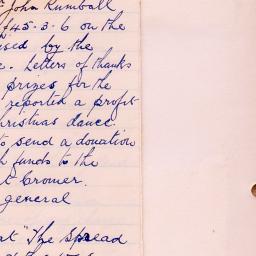 John Rumball
£45-3-6 on the
ised by the
e. Letters of thanks
prizes for the
reported a profit
hristmas dance.
to send a donation
h funds to the
t Cromer.
general
at "The Spread